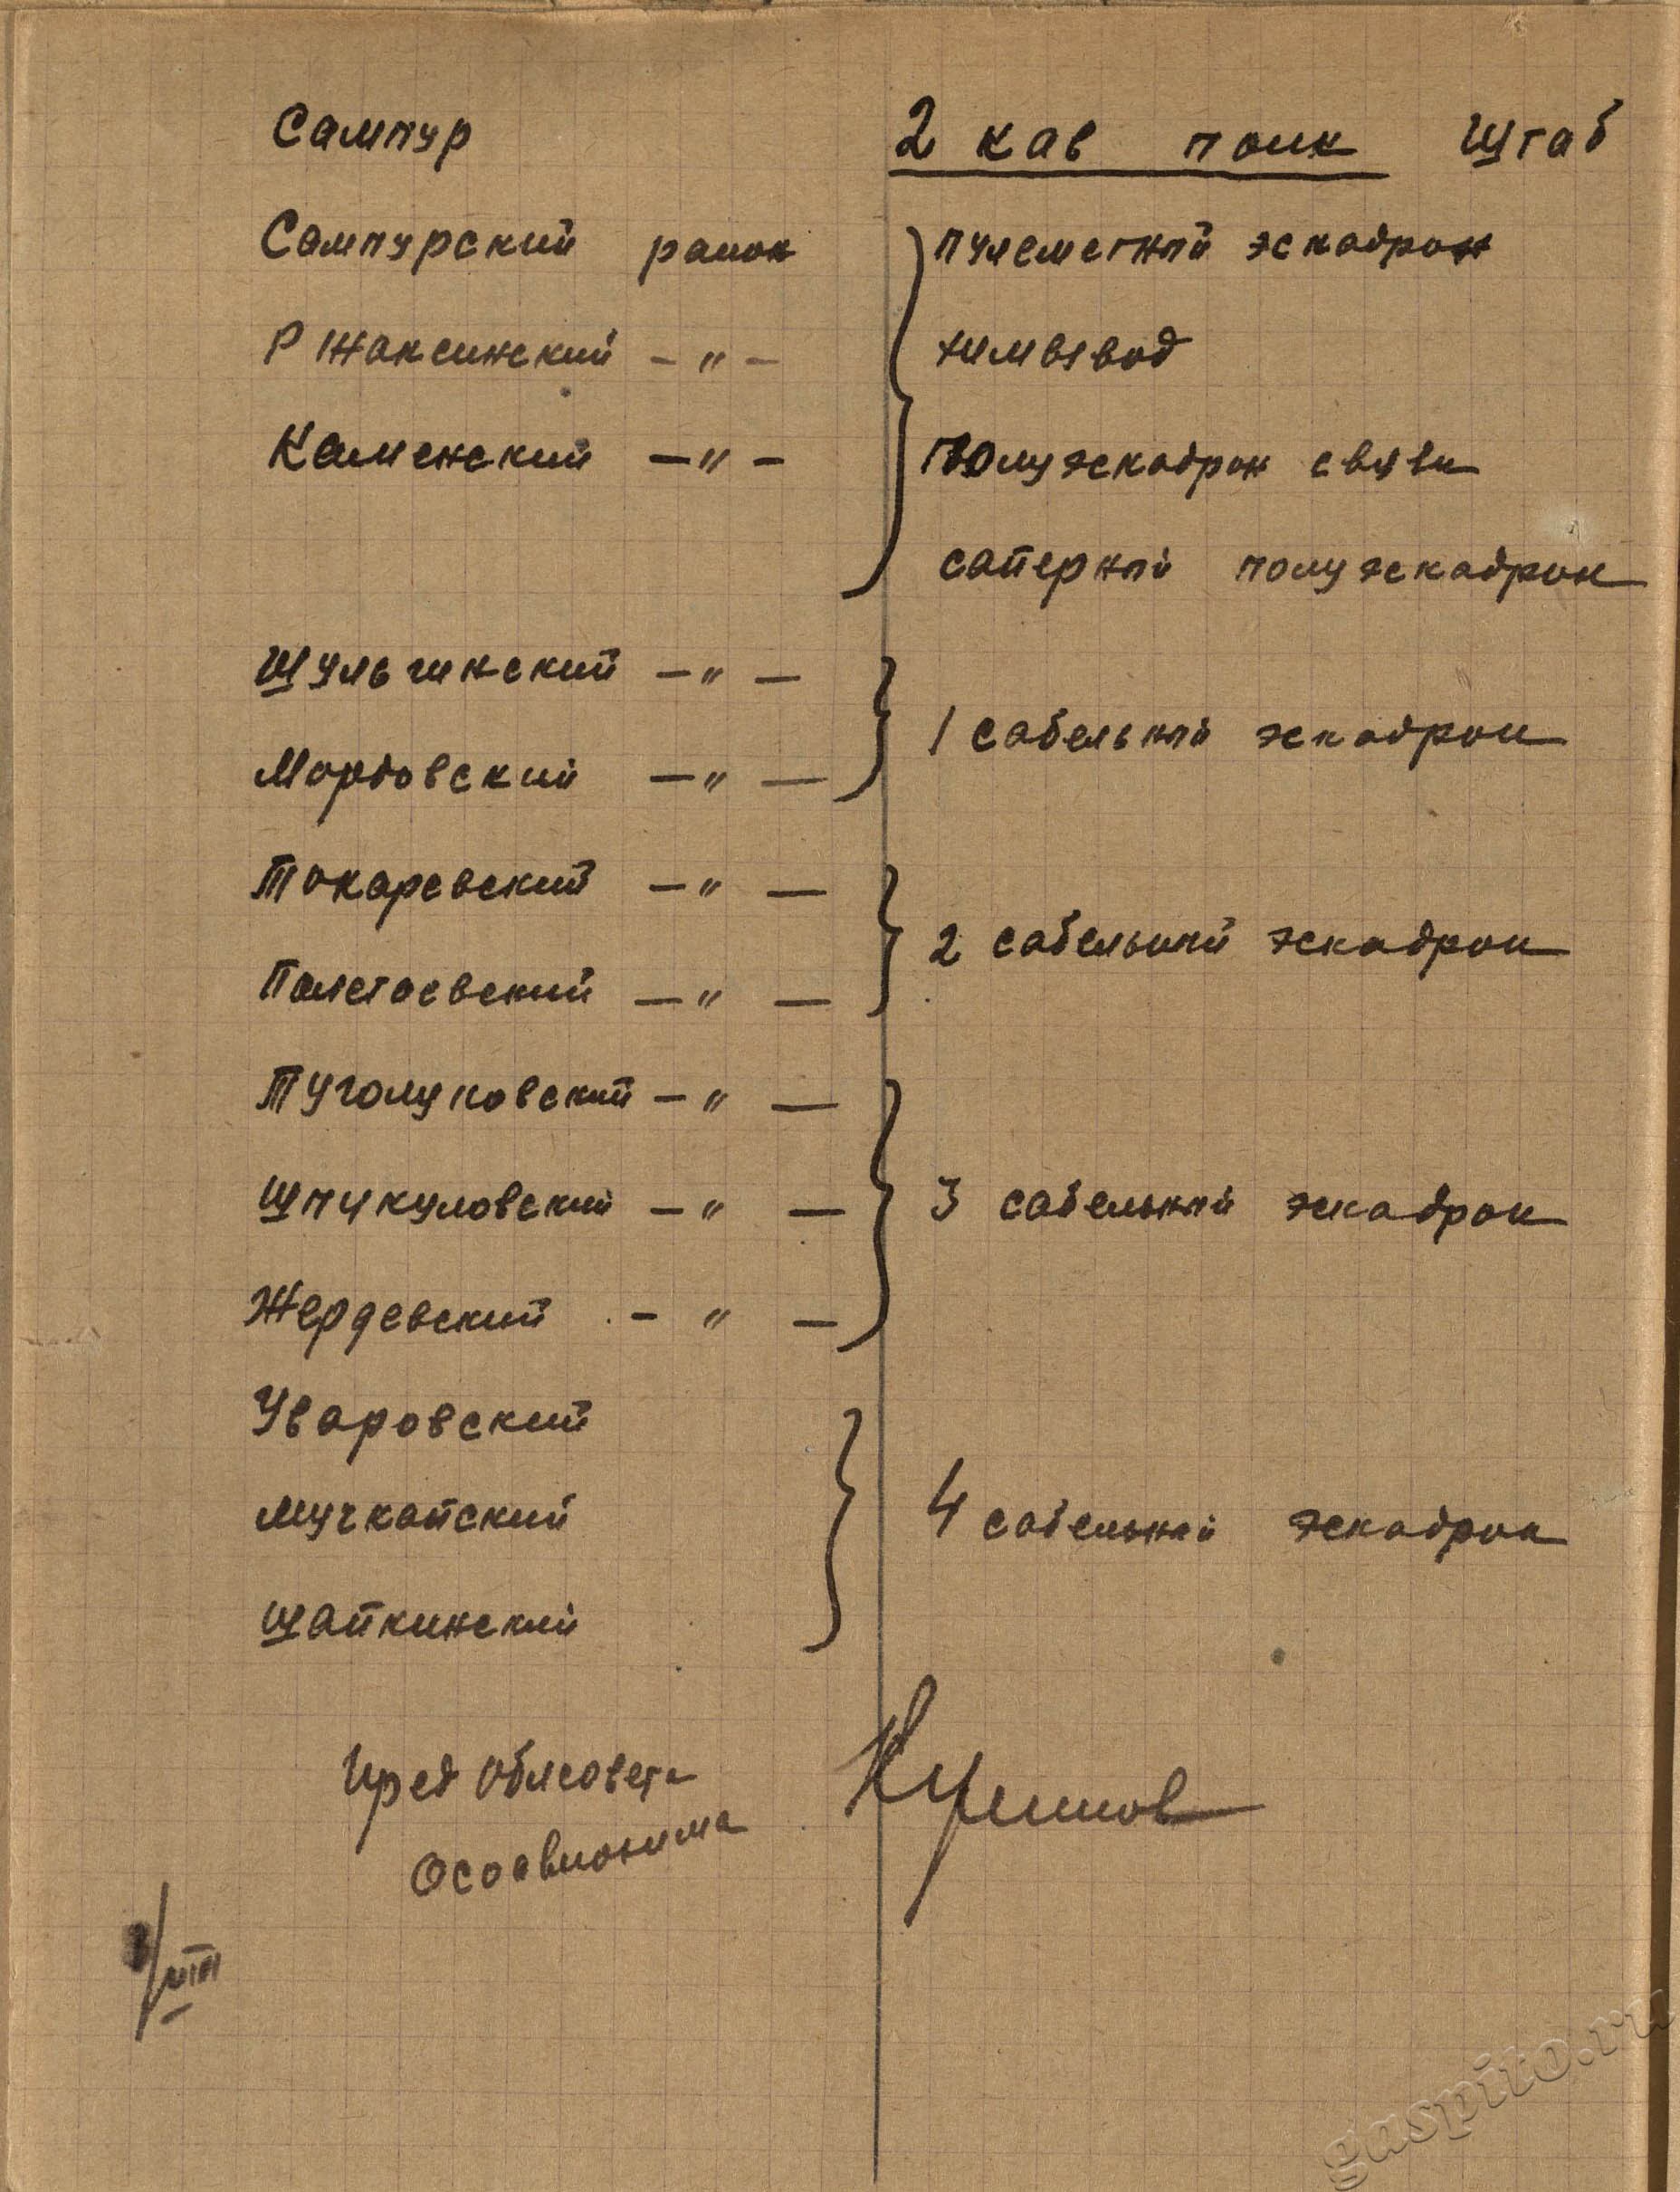 Сампур 2 кав полк Штаб
Сампурский район пулеметный эскадрон
Ржаксинский – " – химвзвод
Каменский – " – полуэскадрон связи
саперный полуэскадрон
Шульгинский – " –
1 сабельный эскадрон
Мордовский – " –
Токаревский – " –
2 сабельный эскадрон
Полетаевский – " –
Туголуковский – " –
Шпикуловский – " – 3 сабельный эскадрон
Жердевский – " –
Уваровский
Мучкапский 4 сабельный эскадрон
Шапкинский
Пред Облсовета
Осоавиохима
/VIII
gaspito.ru